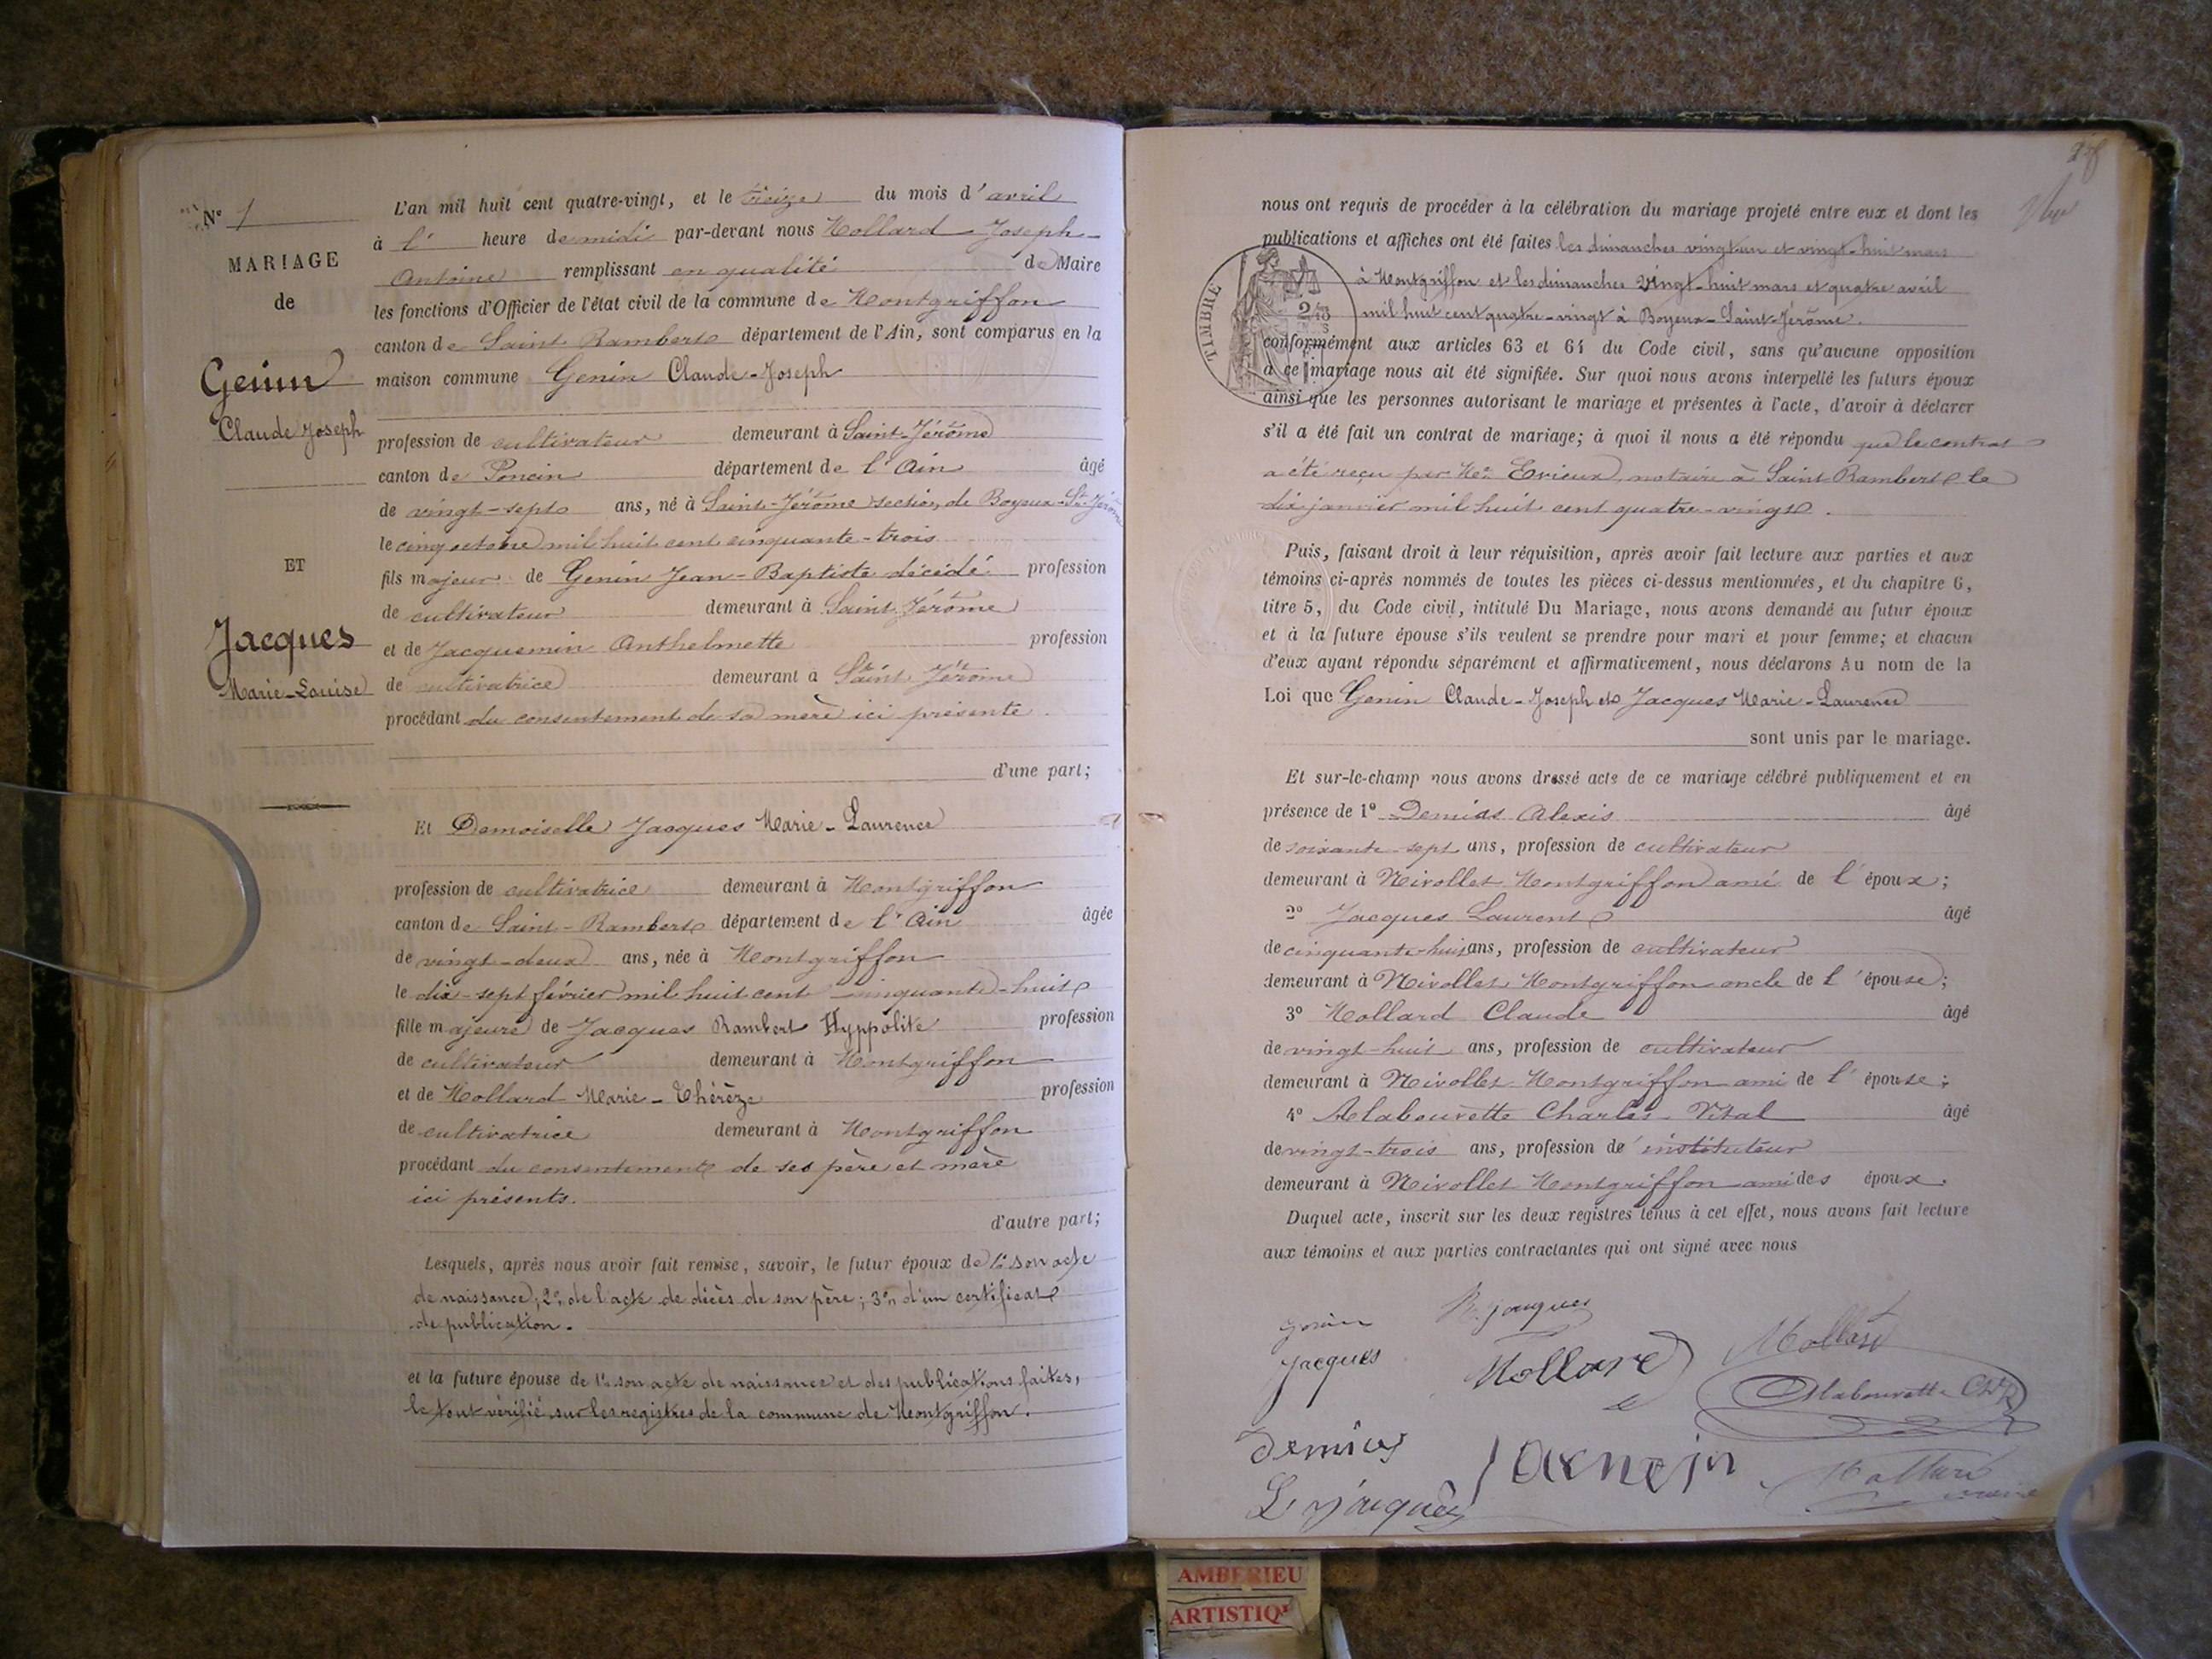 N° 1
MARIAGE
de
Genin
Claude Joseph
ET
Jacques
Marie-Louise
L'an mil huit cent quatre-vingt, et le treize du mois d'avril
à l' heure de midi par-devant nous Mollard Joseph-
Antoine remplissant en qualité de Maire
les fonctions d'Officier de l'état civil de la commune de Montgriffon
canton de Saint Rambert département de l'Ain, sont comparus en la
maison commune Genin Claude-Joseph
profession de cultivateur demeurant à Saint-Jérôme
canton de Poncin département de l'Ain âgé
de vingt-sept ans, né à Saint-Jérôme section de Boyeux-St-Jérôme
le cinq octobre mil huit cent cinquante-trois
fils majeur de Genin Jean-Baptiste décédé profession
de cultivateur demeurant à Saint Jérôme
et de Jacquemin Anthelmette profession
de cultivatrice demeurant à Saint Jérôme
procédant du consentement de sa mère ici présente
d'une part;
Et Demoiselle Jacques Marie-Laurence
profession de cultivatrice demeurant à Montgriffon
canton de Saint-Rambert département de l'Ain âgée
de vingt-deux ans, née à Montgriffon
le dix-sept février mil huit cent cinquante-huit
fille majeure de Jacques Rambert Hyppolite profession
de cultivateur demeurant à Montgriffon
et de Mollard Marie-Thérèze profession
de cultivatrice demeurant à Montgriffon
procédant du consentement de ses père et mère
ici présents.
d'autre part;
Lesquels, après nous avoir fait remise, savoir, le futur époux de 1° son acte
de naissance; 2°, de l'acte de décès de son père; 3°, d'un certificat
de publication.
et la future épouse de 1° son acte de naissance et des publications faites,
le tout vérifié sur les registres de la commune de Montgriffon.
nous ont requis de procéder à la célébration du mariage projeté entre eux et dont les
publications et affiches ont été faites les dimanches vingt un et vingt-huit mars
à Montgriffon et les dimanches vingt-huit mars et quatre avril
mil huit cent quatre-vingt à Boyeux-Saint-Jérôme.
TIMBRE
conformément aux articles 63 et 64 du Code civil, sans qu'aucune opposition
à ce mariage nous ait été signifiée. Sur quoi nous avons interpellé les futurs époux
ainsi que les personnes autorisant le mariage et présentes à l'acte, d'avoir à déclarer
s'il a été fait un contrat de mariage; à quoi il nous a été répondu que le contrat
a été reçu par Me Evieux, notaire à Saint Rambert le
dix janvier mil huit cent quatre-vingt.
Puis, faisant droit à leur réquisition, après avoir fait lecture aux parties et aux
témoins ci-après nommés de toutes les pièces ci-dessus mentionnées, et du chapitre 6,
titre 5, du Code civil, intitulé Du Mariage, nous avons demandé au futur époux
et à la future épouse s'ils veulent se prendre pour mari et pour femme; et chacun
d'eux ayant répondu séparément et affirmativement, nous déclarons Au nom de la
Loi que Genin Claude-Joseph et Jacques Marie-Laurence
sont unis par le mariage.
Et sur-le-champ nous avons dressé acte de ce mariage célébré publiquement et en
présence de 1° Demias Alexis âgé
de soixante-sept ans, profession de cultivateur
demeurant à Nivollet Montgriffon ami de l'époux;
2° Jacques Laurent âgé
de cinquante-huit ans, profession de cultivateur
demeurant à Nivollet Montgriffon oncle de l'épouse;
3° Mollard Claude âgé
de vingt-huit ans, profession de cultivateur
demeurant à Nivollet-Montgriffon ami de l'épouse;
4° Alabouvette Charles-Vital âgé
de vingt-trois ans, profession d'instituteur
demeurant à Nivollet Montgriffon ami des époux.
Duquel acte, inscrit sur les deux registres tenus à cet effet, nous avons fait lecture
aux témoins et aux parties contractantes qui ont signé avec nous
genin R. jacques
jacques Mollard Mollard
Alabouvette
Demias
L. jacques
Mollard
maire
AMBERIEU
ARTISTIQ